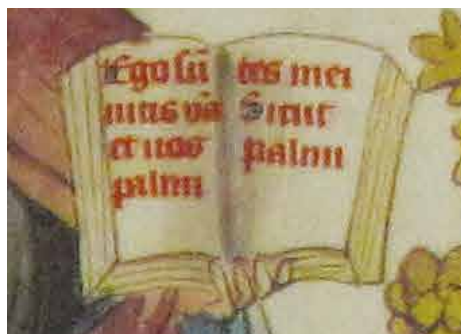 Ego sū
uitis vā
et uos
palmi
tes mei
Sicut
palmi